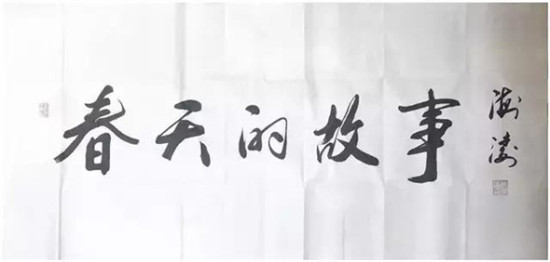 春天的故事
海凌